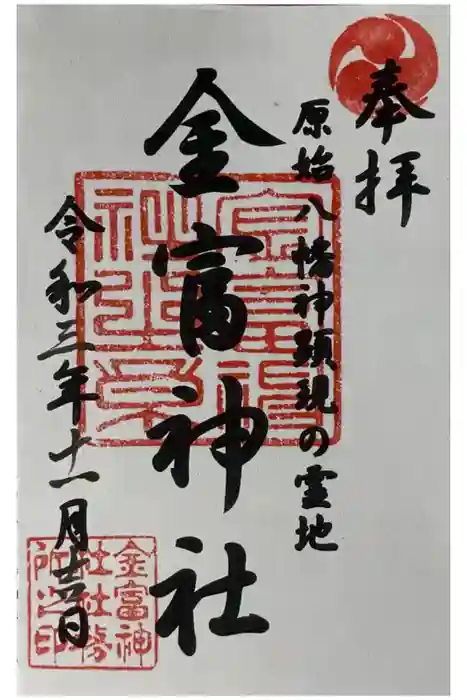 奉拝
原始八幡神顕現の霊地
金富神社
令和三年十一月廿四日
金富神
社社務
所之印